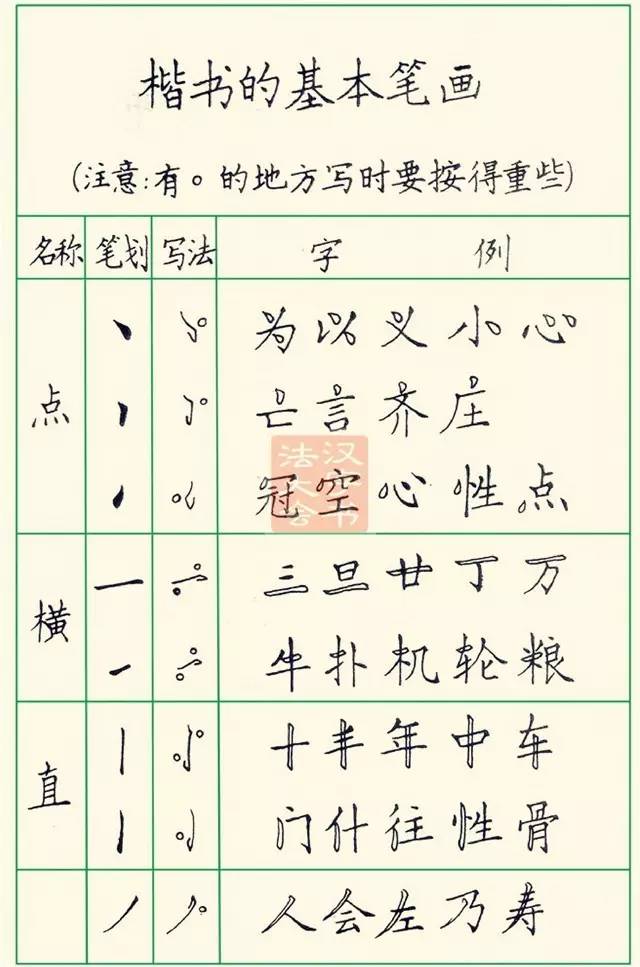 楷书的基本笔画
(注意:有。的地方写时要按得重些)
名称 笔划 写法 字 例
为以义小心
点 亡言齐庄
冠空心性点
汉字书法大会
三旦廿丁万
横
牛扑机轮粮
十半年中车
直
门什往性骨
人会左乃寿